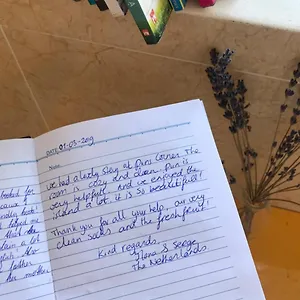 DATE 01-05-2019
Note:
We had a lovely stay at Dunis Corner. The
room is cozy and clean. Duni is
very helpful. And we enjoyed the
island a lot, it is so beautiful!
Thank you for all you help, our very
clean socks and the fresh fruit!
Kind regards,
& Serge
The Netherlands
booked for
a lot
father
her mother